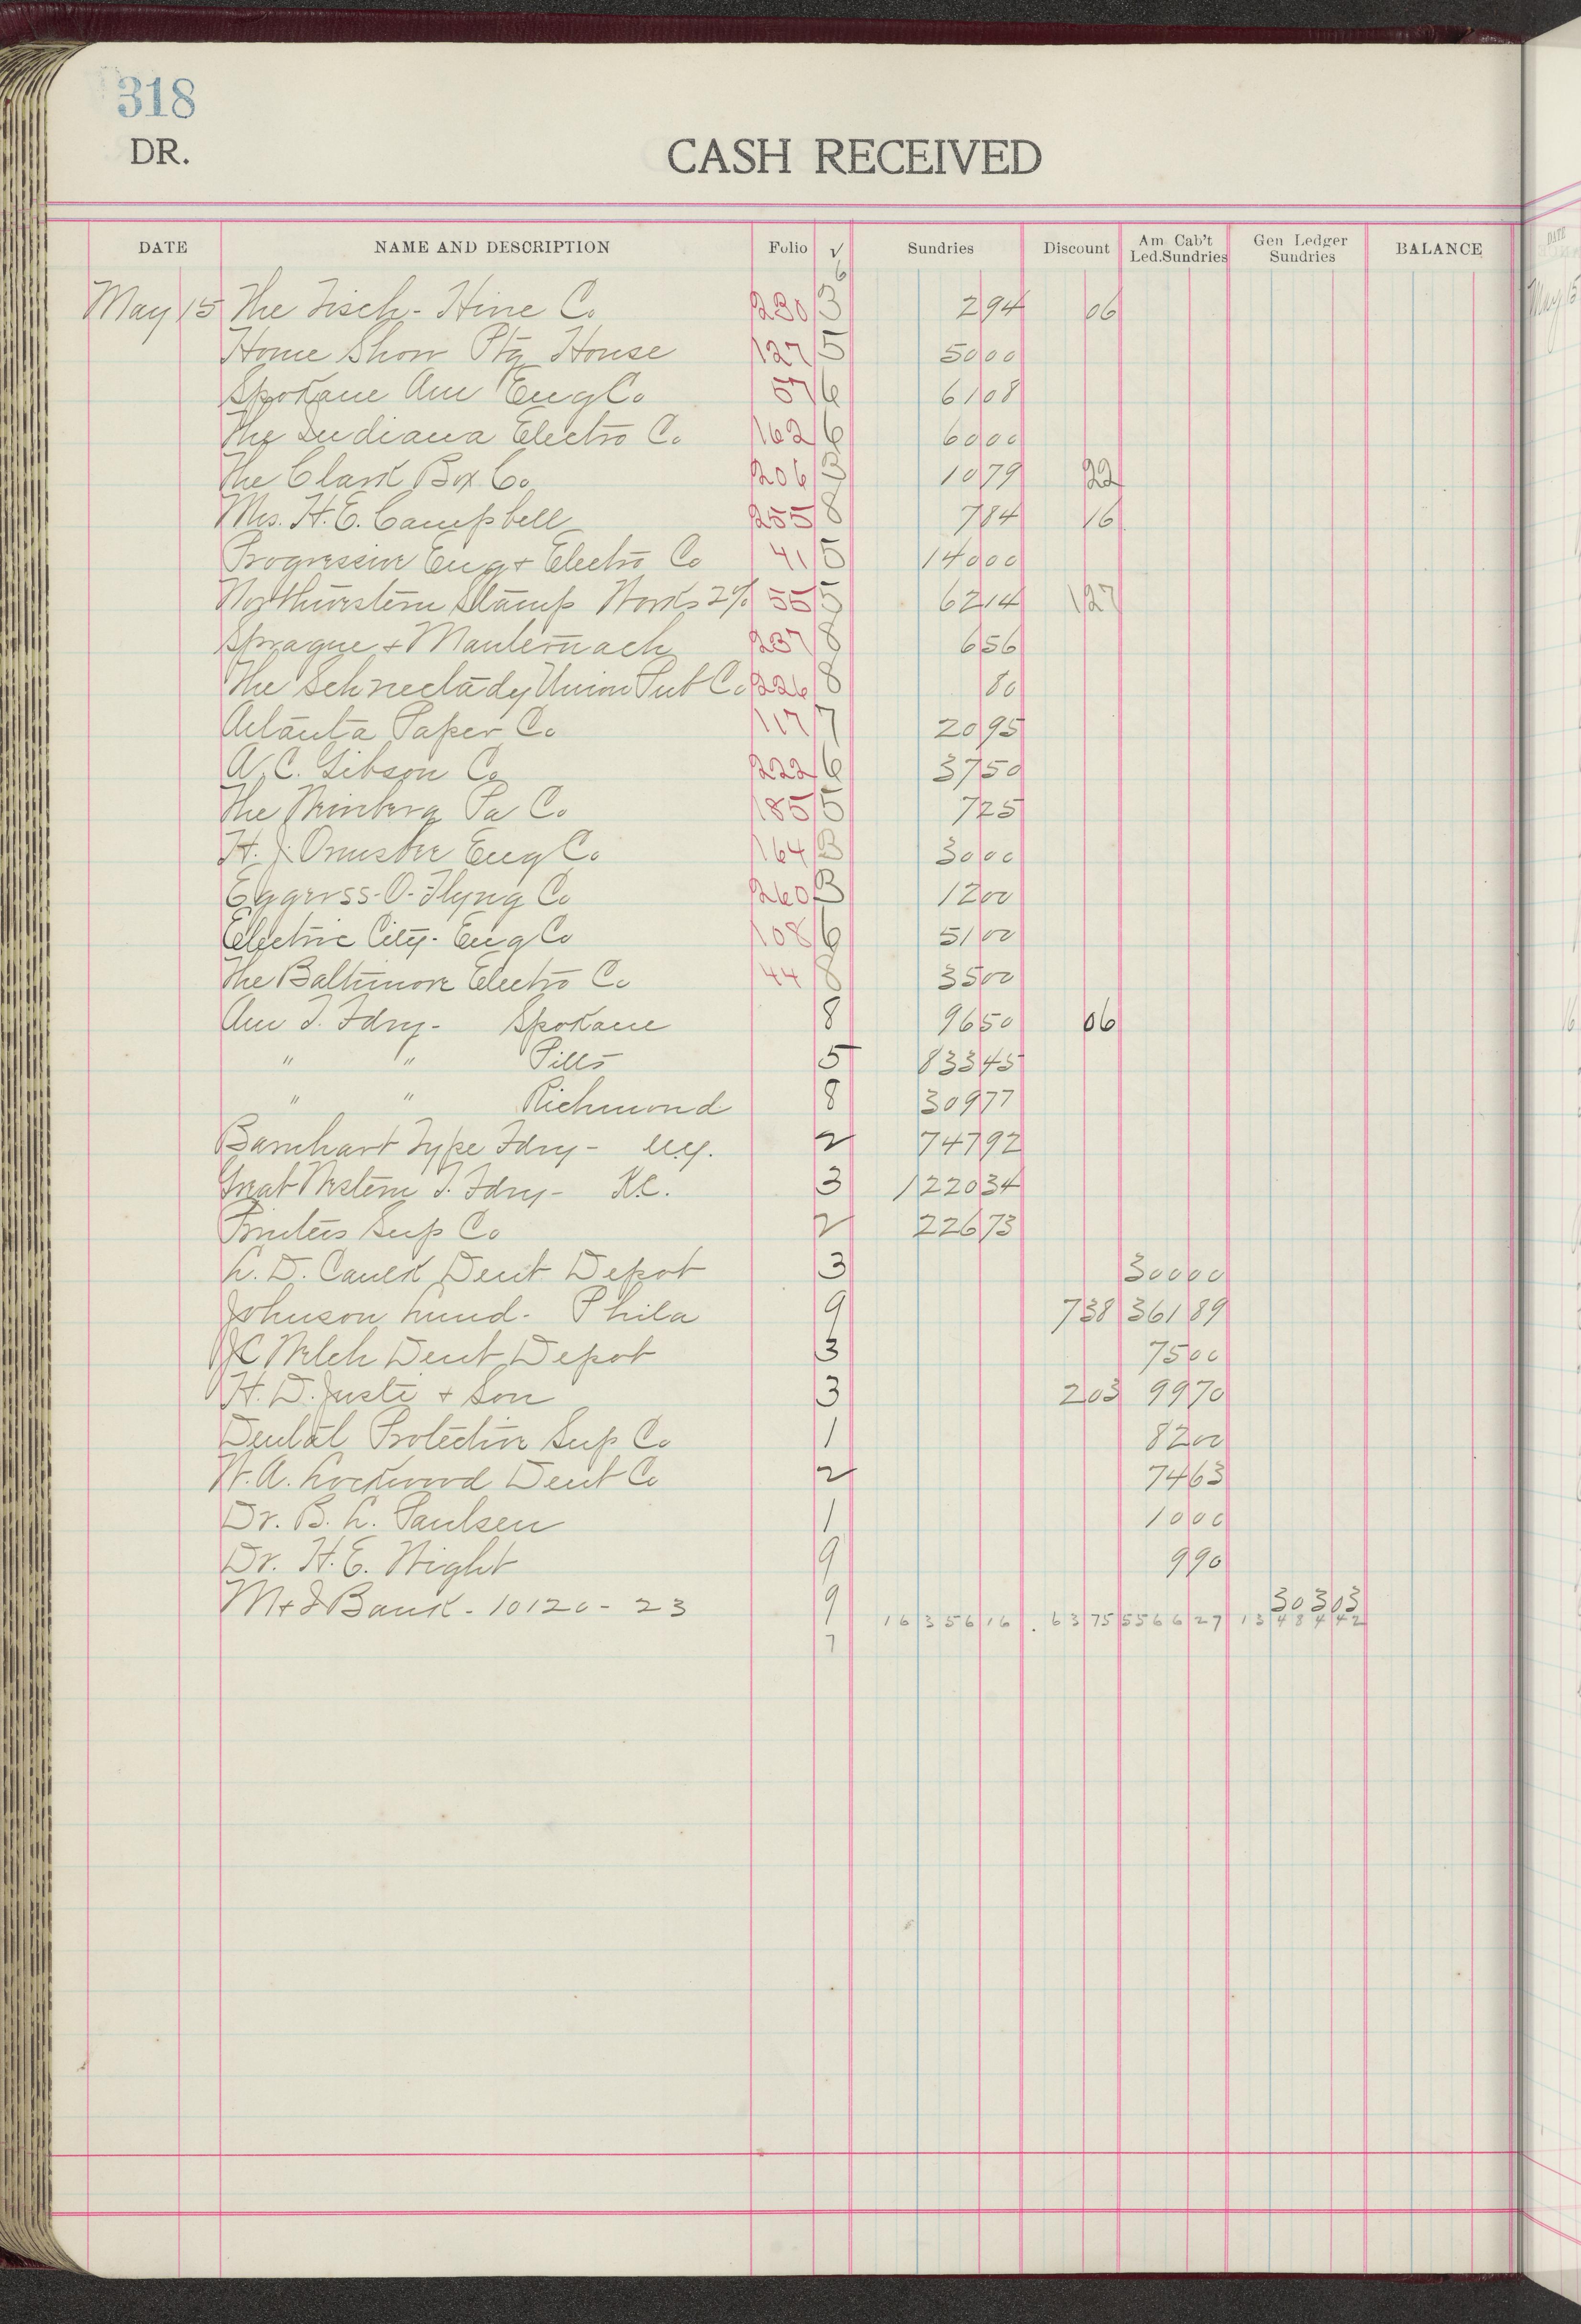 318
DR.
CASH RECEIVED
DATE NAME AND DESCRIPTION Folio √ Sundries Discount Am. Cab't Led. Sundries Gen Ledger Sundries BALANCE
6
May 15 The Tisch-Hine Co 230 3 2 94 06
Home Show Ptg House 127 5 50 00
Spokane Am Eng Co 57 6 61 08
The Indiana Electro Co 162 6 60 00
The Clark Box Co 206 3 10 79 22
Mrs. H. E. Campbell 255 8 7 84 16
Progressive Eng + Electro Co 41 5 140 00
Northwestern Stamp Works 2% 55 5 62 14 1 27
Sprague + 237 8 6 56
The Schnectady Union Pub Co 226 8 80
Atlanta Paper Co 117 7 20 95
A. C. Gibson Co 222 6 37 50
The Pa Co 185 5 7 25
H. J. Ormsbee Eng Co 164 3 30 00
Eggerss-O-Flyng Co 260 3 12 00
Electric City Eng Co 108 6 51 00
The Baltimore Electro Co 44 8 35 00
Am T. Fdry - Spokane 8 96 50 06
" " Pitts 5 833 45
" " Richmond 8 309 77
Barnhart Type Fdry - 2 747 92
Great Western T. Fdry - K.C. 3 1220 34
Printers Sup Co 2 226 73
L. D. Caulk Dent Depot 3 300 00
Johnson Lund - Phila 9 7 38 361 89
J C Welch Dent Depot 3 75 00
H. D. Justi + Son 3 2 03 99 70
Dental Protective Sup Co 1 82 00
W. A. Lockwood Dent Co 2 74 63
Dr. B. L. Paulsen 1 10 00
Dr. H. E. Wight 9 9 90
M + I Bank - 10120 - 23 9 303 03
7 16 356 16 63 75 5566 27 13 484 42